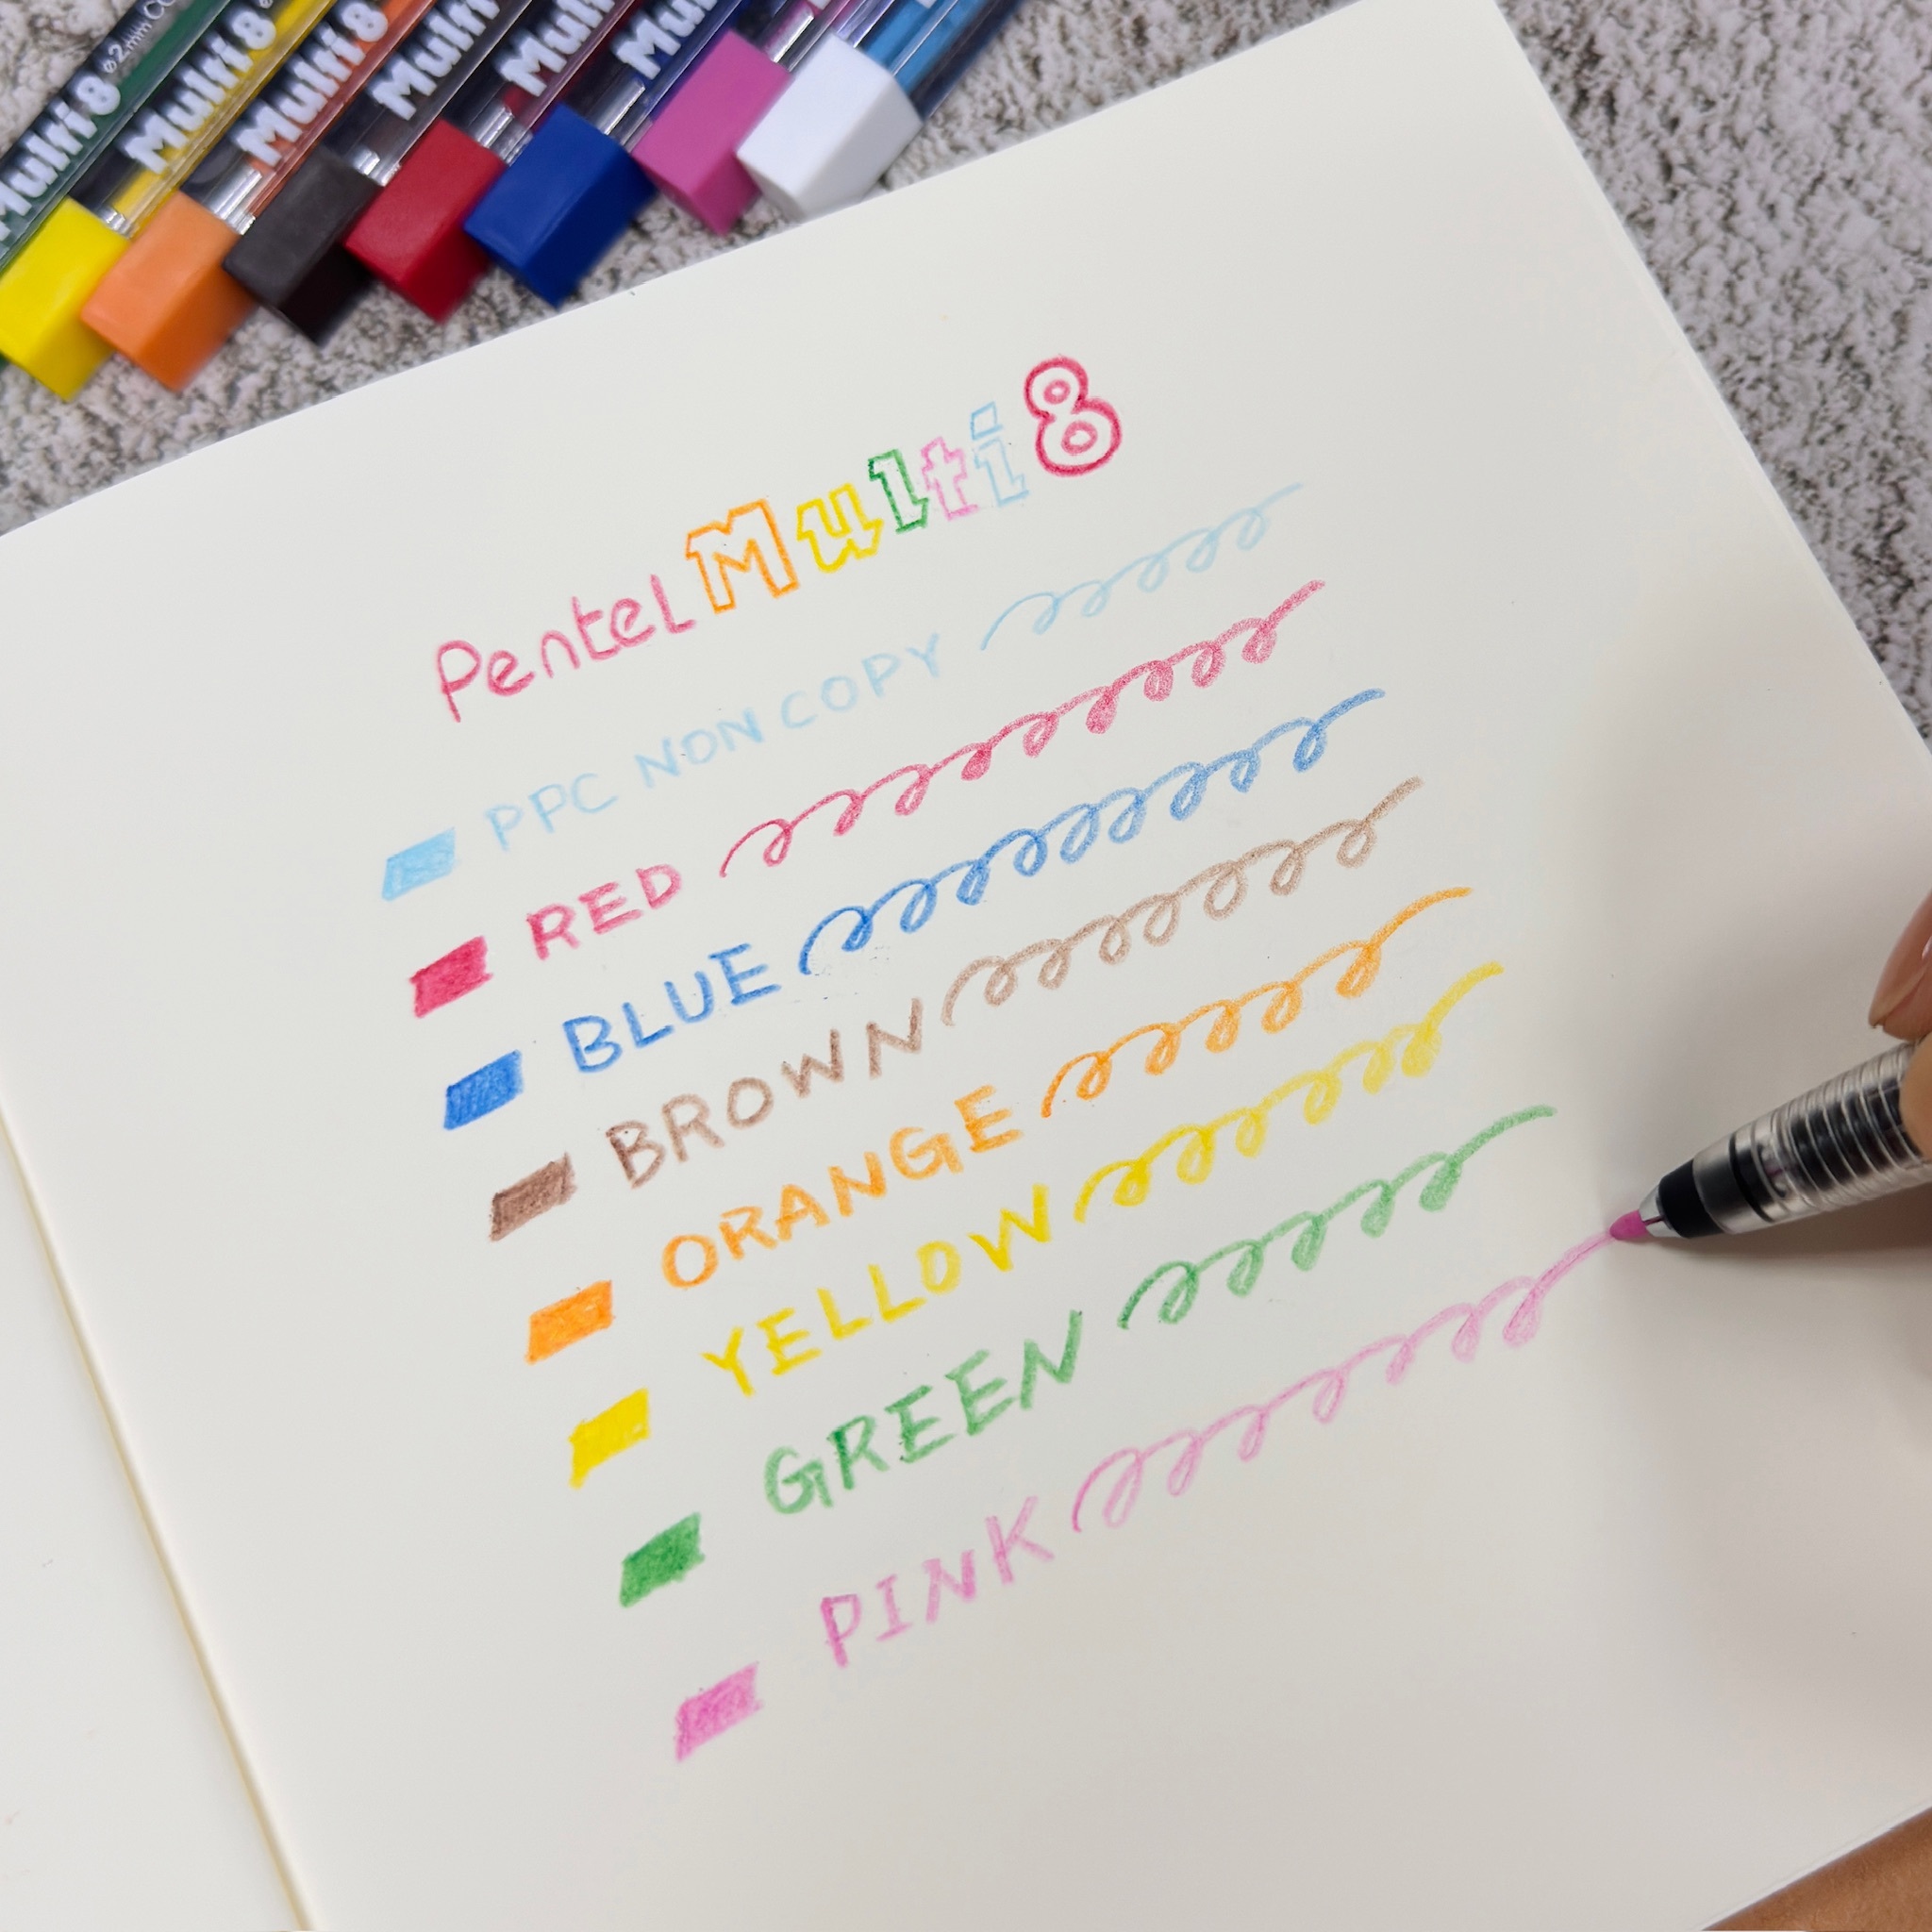 Multi 8 ⌀2mm CO
Multi 8
Multi 8
Multi
Multi
Multi
Pentel Multi 8
PPC NON COPY
RED
BLUE
BROWN
ORANGE
YELLOW
GREEN
PINK